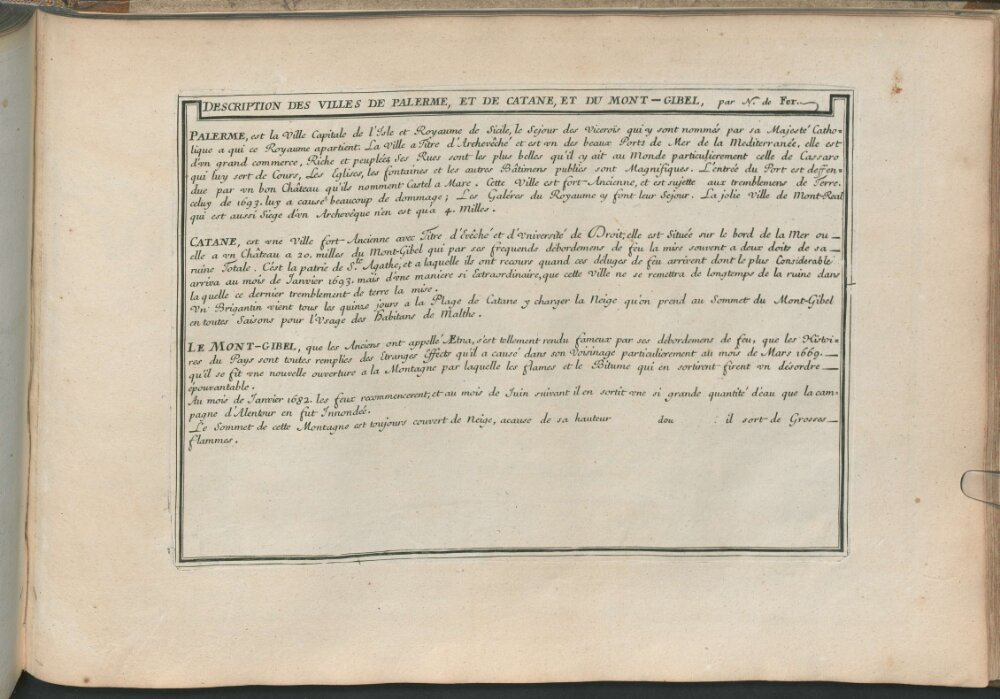 DESCRIPTION DES VILLES DE PALERME, ET DE CATANE, ET DU MONT-GIBEL, par N. de Fer.
PALERME, est la Ville Capitale de l'Isle et Royaume de Sicile, le Sejour des Vicerois qui y sont nommés par sa Majesté Catho-
lique a qui ce Royaume apartient. La Ville a Titre d'Archevêché et est vn des beaux Ports de Mer de la Mediterranée, elle est
d'vn grand commerce, Riche et peuplée, Ses Rues sont les plus belles qu'il ey ait au Monde particulierement celle de Cassaro
qui luy sert de Cours, Les Eglises, les fontaines et les autres Bâtimens publics sont Magnifiques. L'entrée du Port est deffen-
due par vn bon Château qu'ils nomment Castel a Mare. Cette Ville est fort-Ancienne, et est sujette aux tremblemens de Terre.
celuy de 1693. luy a causé beaucoup de dommage; Les Galéres du Royaume y font leur Sejour. La jolie Ville de Mont-Real
qui est aussi Siege d'vn Archevêque n'en est qu'à 4. Milles.
CATANE, est vne Ville fort-Ancienne avec Titre d'Evêché et d'Vniversité de Droit; elle est Située sur le bord de la Mer ou
elle a vn Château a 20. milles du Mont-Gibel qui par ses frequends débordemens de feu la mise souvent a deux doits de sa
ruine Totale. C'est la patrie de Ste. Agathe, et a laquelle ils ont recours quand ces déluges de feu arrivent dont le plus Considerable
arriva au mois de Janvier 1693. mais d'vne maniere si Extraordinaire, que cette Ville ne se remettra de longtemps de la ruine dans
la quelle ce dernier tremblement de terre la mise.
Vn Brigantin vient tous les quinze jours a la Plage de Catane y charger la Neige qu'on prend au Sommet du Mont-Gibel
en toutes Saisons pour l'Vsage des Habitans de Malthe.
LE MONT-GIBEL, que les Anciens ont appellé Ætna, s'est tellement rendu fameux par ses débordemens de feu, que les Histoi-
res du Pays sont toutes remplies des Etranges Effects qu'il a causé dans son Voisinage particulierement au mois de Mars 1669.
qu'il se fit vne nouvelle ouverture a la Montagne par laquelle les flames et le Bitume qui en sortirent firent vn désordre
epouvantable.
Au mois de Janvier 1682. les feux recommencerent; et au mois de Juin suivant il en sortit vne si grande quantité d'eau que la cam-
pagne d'Alentour en fut Innondeé.
Le Sommet de cette Montagne est toujours couvert de Neige, acause de sa hauteur dou : il sort de Grosses
flammes.